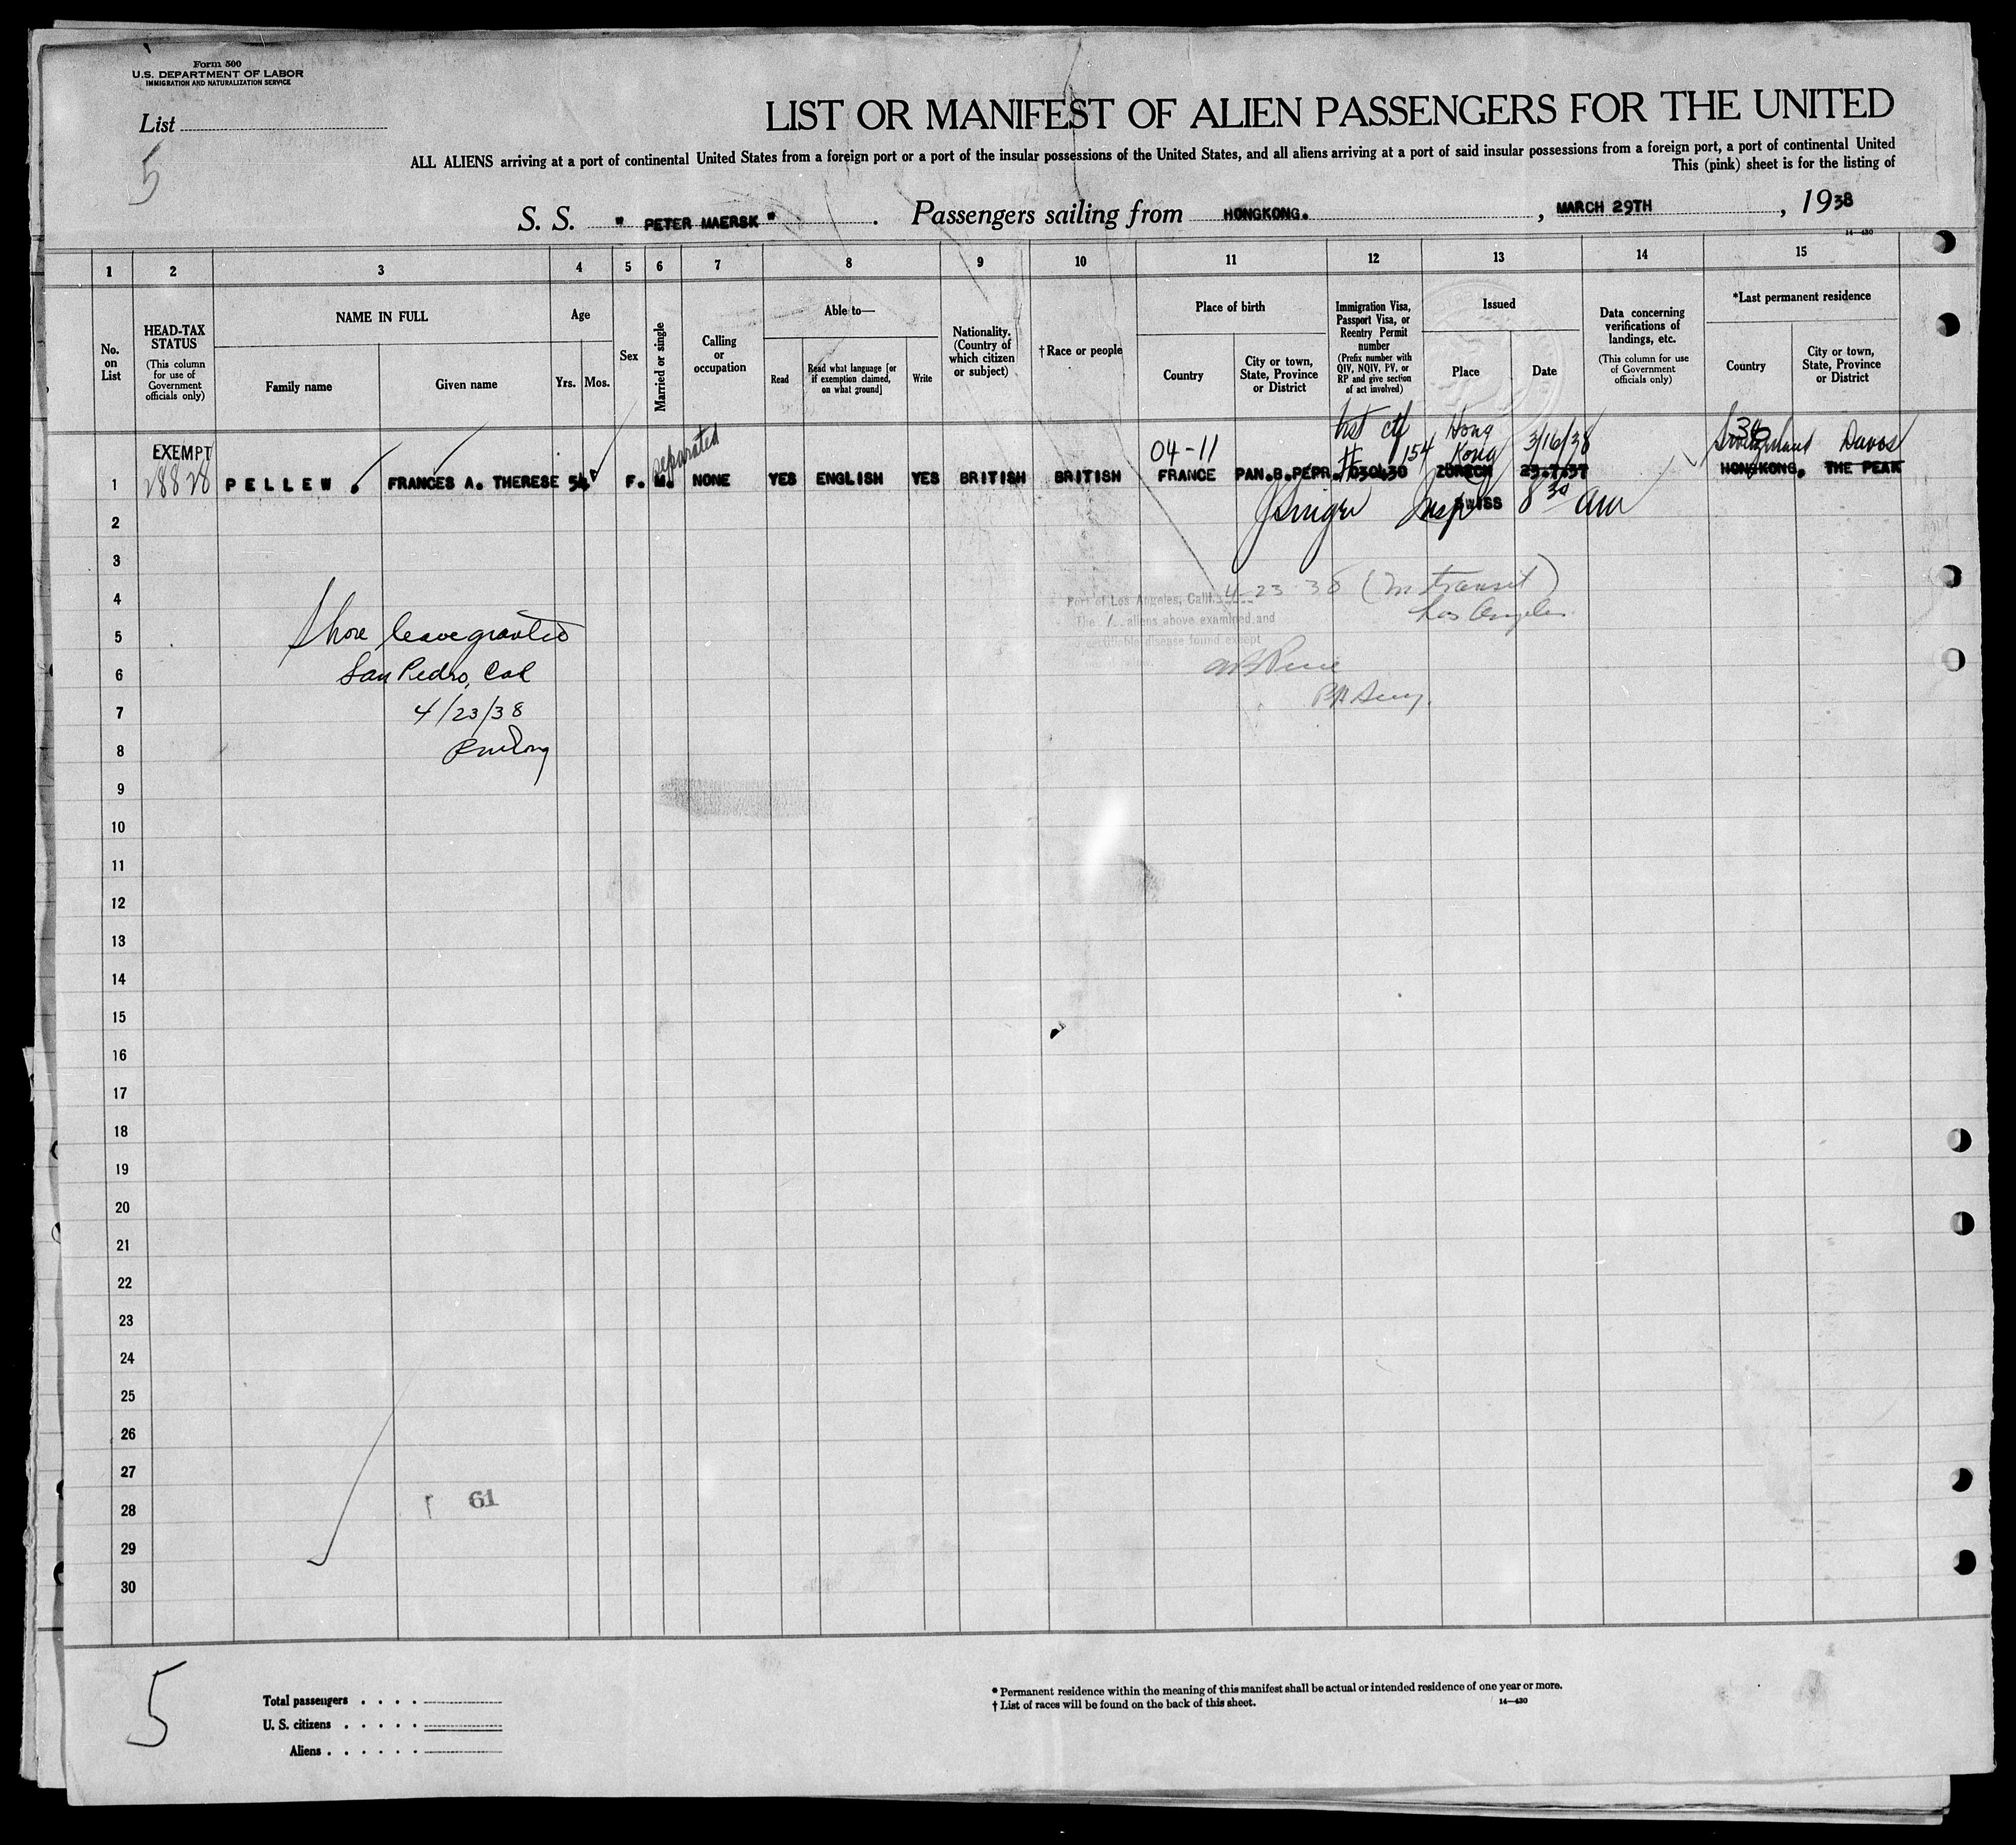 Form 500
U.S. DEPARTMENT OF LABOR
IMMIGRATION AND NATURALIZATION SERVICE
List
5
LIST OR MANIFEST OF ALIEN PASSENGERS FOR THE UNITED
ALL ALIENS arriving at a port of continental United States from a foreign port or a port of the insular possessions of the United States, and all aliens arriving at a port of said insular possessions from a foreign port, a port of continental United
This (pink) sheet is for the listing of
S. S. " PETER MAERSK " . Passengers sailing from HONGKONG. , MARCH 29TH , 1938
14—430
1 2 3 4 5 6 7 8 9 10 11 12 13 14 15
No. on List
HEAD-TAX STATUS
(This column for use of Government officials only)
NAME IN FULL
Family name
Given name
Age
Yrs.
Mos.
Sex
Married or single
Calling or occupation
Able to—
Read
Read what language [or if exemption claimed, on what ground]
Write
Nationality. (Country of which citizen or subject)
† Race or people
Place of birth
Country
City or town, State, Province or District
Immigration Visa, Passport Visa, or Reentry Permit number
(Prefix number with QIV, NQIV, PV, or RP and give section of act involved)
Issued
Place
Date
Data concerning verifications of landings, etc.
(This column for use of Government officials only)
*Last permanent residence
Country
City or town, State, Province or District
EXEMPT
separated
04-11
# 154
Hong Kong
3/16/38
36
Switzerland Davos
28828
1 PELLEW . FRANCES A. THERESE 54 F. M. NONE YES ENGLISH YES BRITISH BRITISH FRANCE PAN.B.PEPR. 030430 ZURECH 23.7.37 HONGKONG. THE PEAK
Insp SWISS 8 30 am
2
3
4
5
6
7
8
9
10
11
12
13
14
15
16
17
18
19
20
21
22
23
24
25
26
27
28
29
30
4-23-38 (In transit)
Los Angeles
Port of Los Angeles, Calif.
The 1 aliens above examined and
disease found except
Shore leave granted
San Pedro, Cal
4/23/38
61
5
Total passengers . . . .
U. S. citizens . . . . .
Aliens . . . . . .
* Permanent residence within the meaning of this manifest shall be actual or intended residence of one year or more.
† List of races will be found on the back of this sheet.
14—430